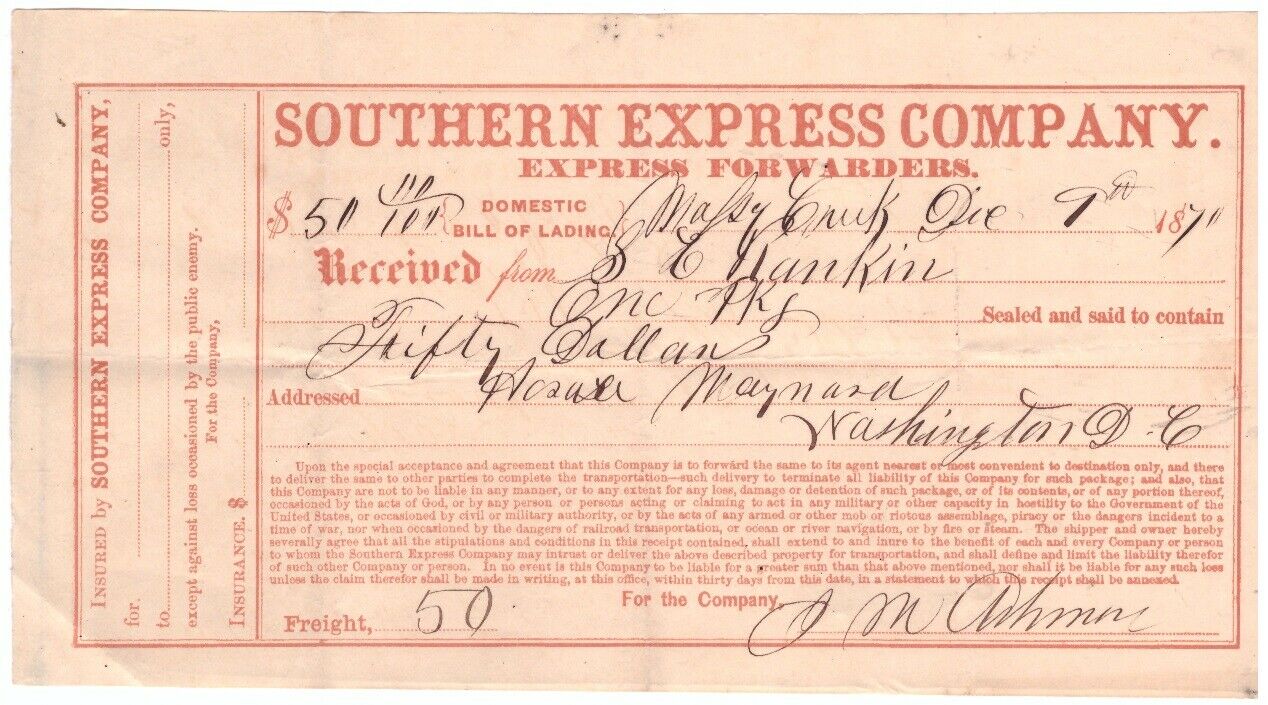 INSURED by SOUTHERN EXPRESS COMPANY,
for
to only,
except against loss occasioned by the public enemy.
For the Company,
INSURANCE. $
SOUTHERN EXPRESS COMPANY.
EXPRESS FORWARDERS.
$ 50 00/100 DOMESTIC BILL OF LADING Mossy Creek Dec 9th 1870
Received from S E Rankin
One Pkg Sealed and said to contain
Fifty Dollars
Addressed Horace Maynard
Washington D C
Upon the special acceptance and agreement that this Company is to forward the same to its agent nearest or most convenient to destination only, and there
to deliver the same to other parties to complete the transportation—such delivery to terminate all liability of this Company for such package; and also, that
this Company are not to be liable in any manner, or to any extent for any loss, damage or detention of such package, or of its contents, or of any portion thereof,
occasioned by the acts of God, or by any person or persons acting or claiming to act in any military or other capacity in hostility to the Government of the
United States, or occasioned by civil or military authority, or by the acts of any armed or other mob or riotous assemblage, piracy or the dangers incident to a
time of war, nor when occasioned by the dangers of railroad transportation, or ocean or river navigation, or by fire or steam. The shipper and owner hereby
severally agree that all the stipulations and conditions in this receipt contained, shall extend to and inure to the benefit of each and every Company or person
to whom the Southern Express Company may intrust or deliver the above described property for transportation, and shall define and limit the liability therefor
of such other Company or person. In no event is this Company to be liable for a greater sum than that above mentioned, nor shall it be liable for any such loss
unless the claim therefor shall be made in writing, at this office, within thirty days from this date, in a statement to which this receipt shall be annexed.
For the Company,
Freight, 50 J M